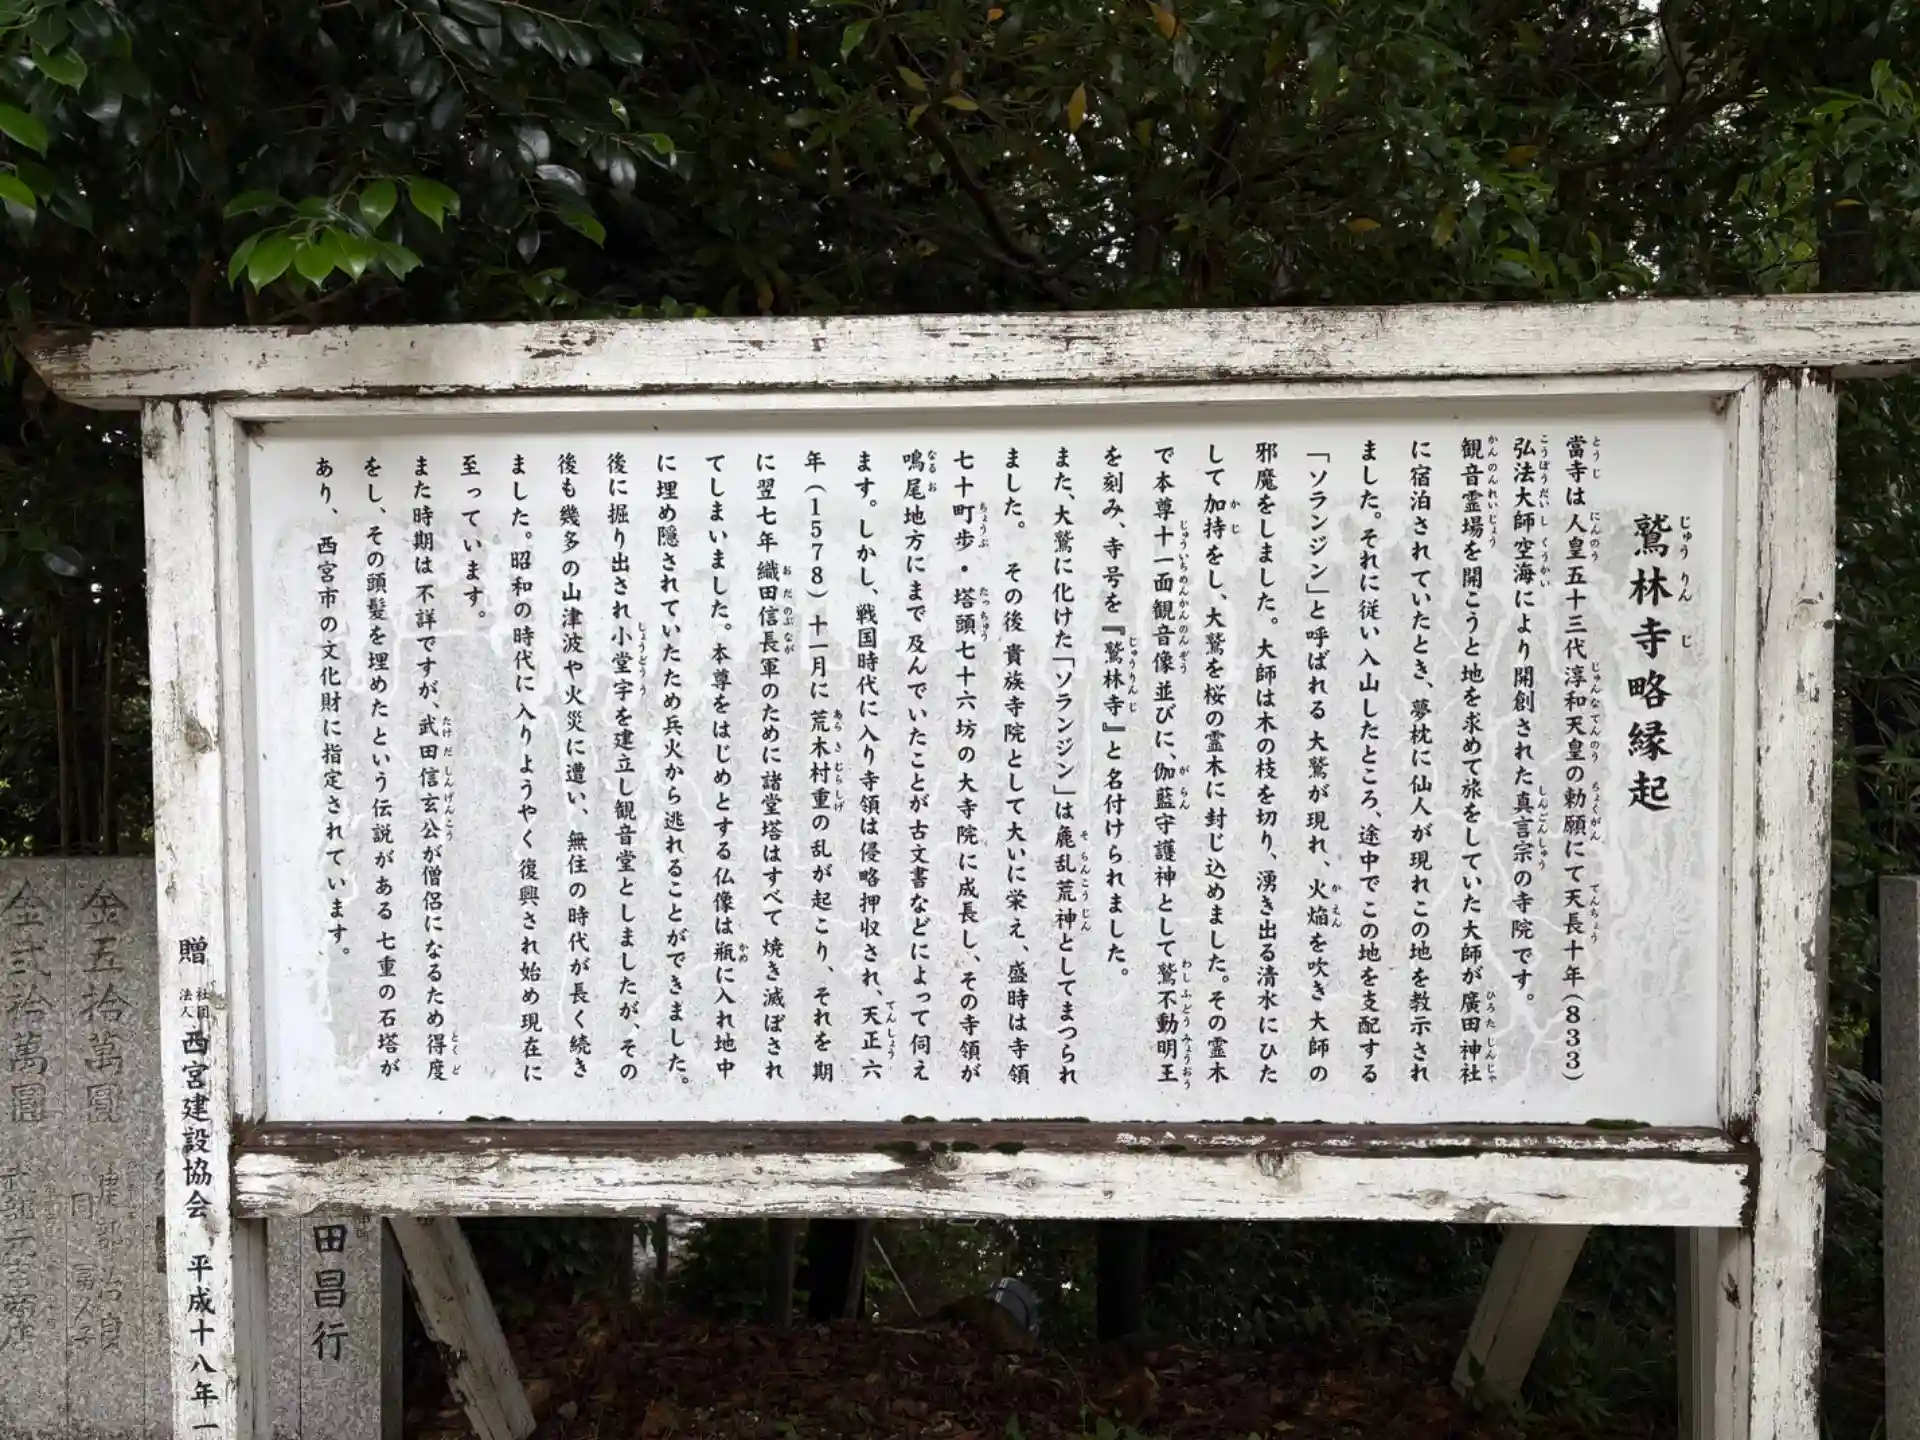 鷲林寺略縁起
當寺は人皇五十三代淳和天皇の勅願にて天長十年(833)
弘法大師空海により開創された真言宗の寺院です。
観音霊場を開こうと地を求めて旅をしていた大師が廣田神社
に宿泊されていたとき、夢枕に仙人が現れこの地を教示され
ました。それに従い入山したところ、途中でこの地を支配する
「ソランジン」と呼ばれる大鷲が現れ、火焔を吹き大師の
邪魔をしました。大師は木の枝を切り、湧き出る清水にひた
して加持をし、大鷲を桜の霊木に封じ込めました。その霊木
で本尊十一面観音像並びに、伽藍守護神として鷲不動明王
を刻み、寺号を『鷲林寺』と名付けられました。
また、大鷲に化けた「ソランジン」は麁乱荒神としてまつられ
ました。 その後貴族寺院として大いに栄え、盛時は寺領
七十町歩・塔頭七十六坊の大寺院に成長し、その寺領が
鳴尾地方にまで及んでいたことが古文書などによって伺え
ます。しかし、戦国時代に入り寺領は侵略押収され、天正六
年(1578)十一月に荒木村重の乱が起こり、それを期
に翌七年織田信長軍のために諸堂塔はすべて焼き滅ぼされ
てしまいました。本尊をはじめとする仏像は瓶に入れ地中
に埋め隠されていたため兵火から逃れることができました。
後に掘り出され小堂宇を建立し観音堂としましたが、その
後も幾多の山津波や火災に遭い、無住の時代が長く続き
ました。昭和の時代に入りようやく復興され始め現在に
至っています。
また時期は不詳ですが、武田信玄公が僧侶になるため得度
をし、その頭髪を埋めたという伝説がある七重の石塔が
あり、西宮市の文化財に指定されています。
贈 社団法人 西宮建設協会 平成十八年一
田昌行
金五拾萬圓
金弐拾萬圓